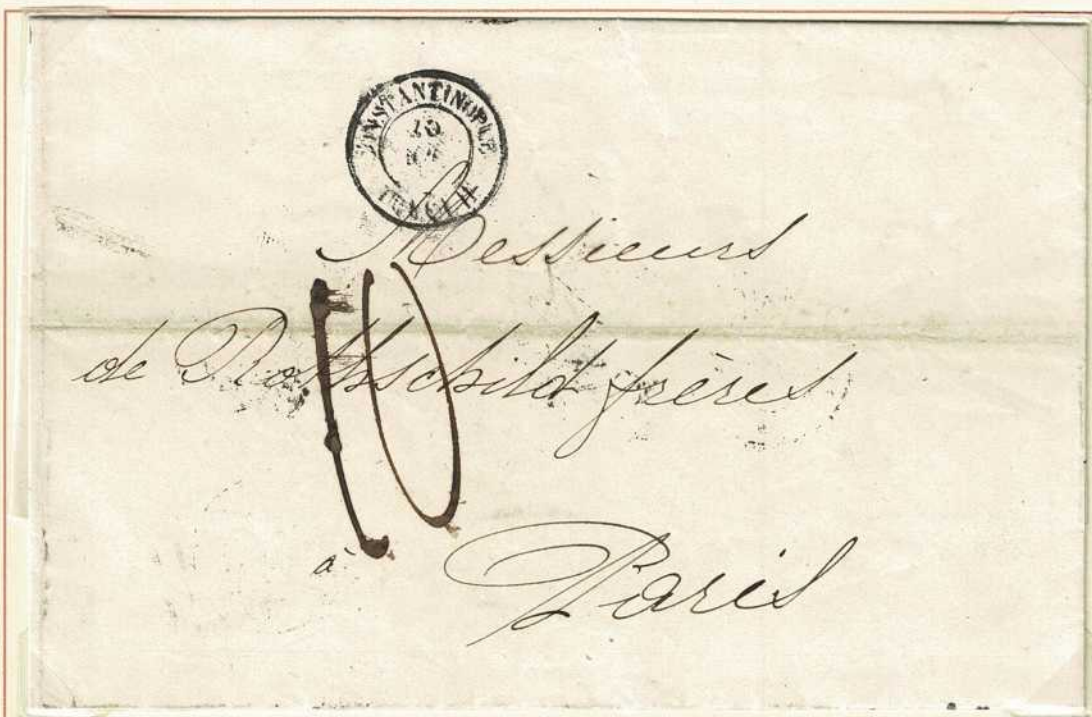 CONSTANTINOPLE
TURQUIE
Messieurs
de Rothschild frères
10
à Paris